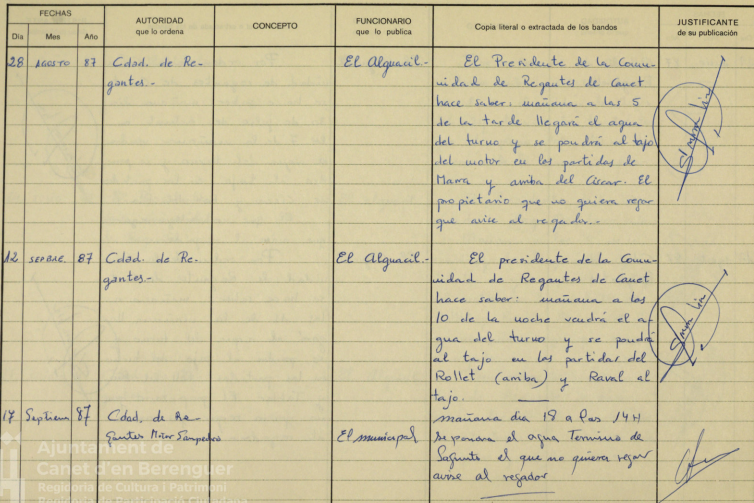 FECHAS
Día Mes Año
AUTORIDAD
que lo ordena
CONCEPTO
FUNCIONARIO
que lo publica
Copia literal o extractada de los bandos
JUSTIFICANTE
de su publicación
28 AGOSTO 87
Cdad. de Re-
gantes.-
El Alguacil.-
El Presidente de la Comu-
nidad de Regantes de Canet
hace saber: mañana a las 5
de la tarde llegará el agua
del turno y se pondrá al tajo
del motor en las partidas de
Marra y arriba del Ciscar. El
propietario que no quiera regar
que avise al regador.-
12 SEPBRE. 87
Cdad. de Re-
gantes.-
El Alguacil.-
El presidente de la Comu-
nidad de Regantes de Canet
hace saber: mañana a las
10 de la noche vendrá el a-
gua del turno y se pondrá
al tajo en las partidas del
Rollet (arriba) y Raval al
tajo.
17 Septiem 87
Cdad. de Re-
gantes Motor Sampedro
El municipal
mañana dia 18 a las 14 H
se pondra el agua Termino de
Sagunto el que no quiera regar
avise al regador
Ajuntament de
Canet d'en Berenguer
Regidoria de Cultura i Patrimoni